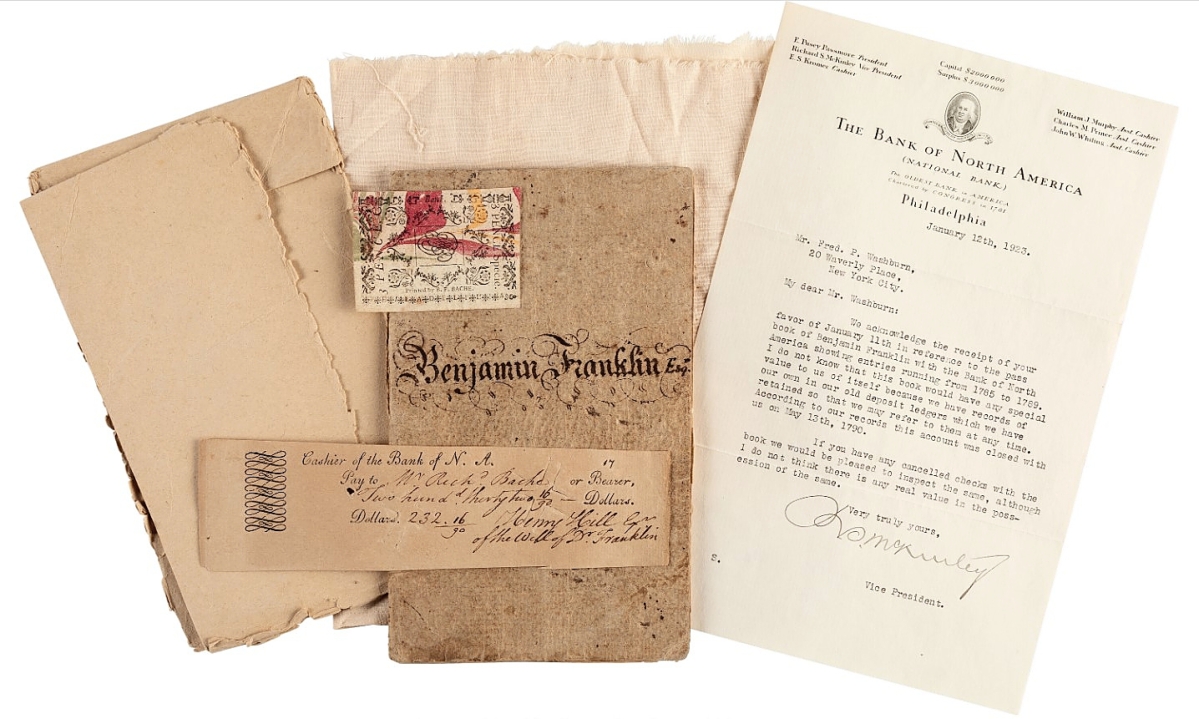 Benjamin Franklin Esq.
Printed by B. F. BACHE.
Cashier of the Bank of N. A.
17
Pay to Mr Richd Bache or Bearer,
Two hundd thirty two 16/90 — Dollars.
Dollars. 232.16/90 Henry Hill Exr
of the Will of Dr. Franklin
E Pusey Passmore President
Richard S McKinley Vice President
E S Kromer Cashier
Capital $2000000
Surplus $
William J Murphy Asst Cashier
Charles M. Prince Asst Cashier
John W Whiting Asst Cashier
THE BANK OF NORTH AMERICA
(NATIONAL BANK)
The OLDEST BANK in AMERICA
Chartered by CONGRESS in 1781
Philadelphia
January 12th, 1923.
Mr. Fred. P. Washburn,
20 Waverly Place,
New York City.
My dear Mr. Washburn:
We acknowledge the receipt of your
favor of January 11th in reference to the pass
book of Benjamin Franklin with the Bank of North
America showing entries running from 1785 to 1789.
I do not know that this book would have any special
value to us of itself because we have records of
our own in our old deposit ledgers which we have
retained so that we may refer to them at any time.
According to our records this account was closed with
us on May 13th, 1790.
If you have any cancelled checks with the
book we would be pleased to inspect the same, although
I do not think there is any real value in the poss-
ession of the same.
Very truly yours,
McKinley
Vice President.
S.